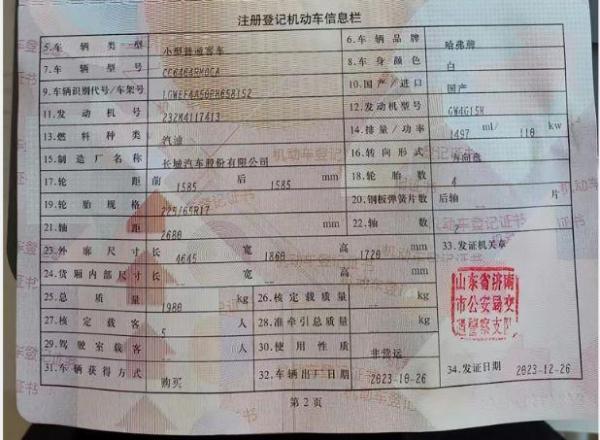 注册登记机动车信息栏
5.车辆类型 小型普通客车 6.车辆品牌 哈弗牌
7.车辆型号 8.车身颜色 白
9.车辆识别代号/车架号 10.国产/进口 国产
11.发动机号 232M4117413 12.发动机型号 GW4G15M
13.燃料种类 汽油 14.排量/功率 1497 ml/ 110 kw
15.制造厂名称 长城汽车股份有限公司 16.转向形式 方向盘
17.轮距 前 1585 后 1585 mm 18.轮胎数 4
19.轮胎规格 225/65R17 20.钢板弹簧片数 后轴 片
21.轴距 2680 mm 22.轴数 2
23.外廓尺寸 长 4645 宽 1860 高 1720 mm 33.发证机关章
24.货厢内部尺寸 长 宽 高 mm
25.总质量 1980 kg 26.核定载质量 kg
27.核定载客 5 人 28.准牵引总质量 kg
29.驾驶室载客 人 30.使用性质 非营运
31.车辆获得方式 购买 32.车辆出厂日期 2023-10-26 34.发证日期 2023-12-26
山东省济南
市公安局交
通警察支队
第2页